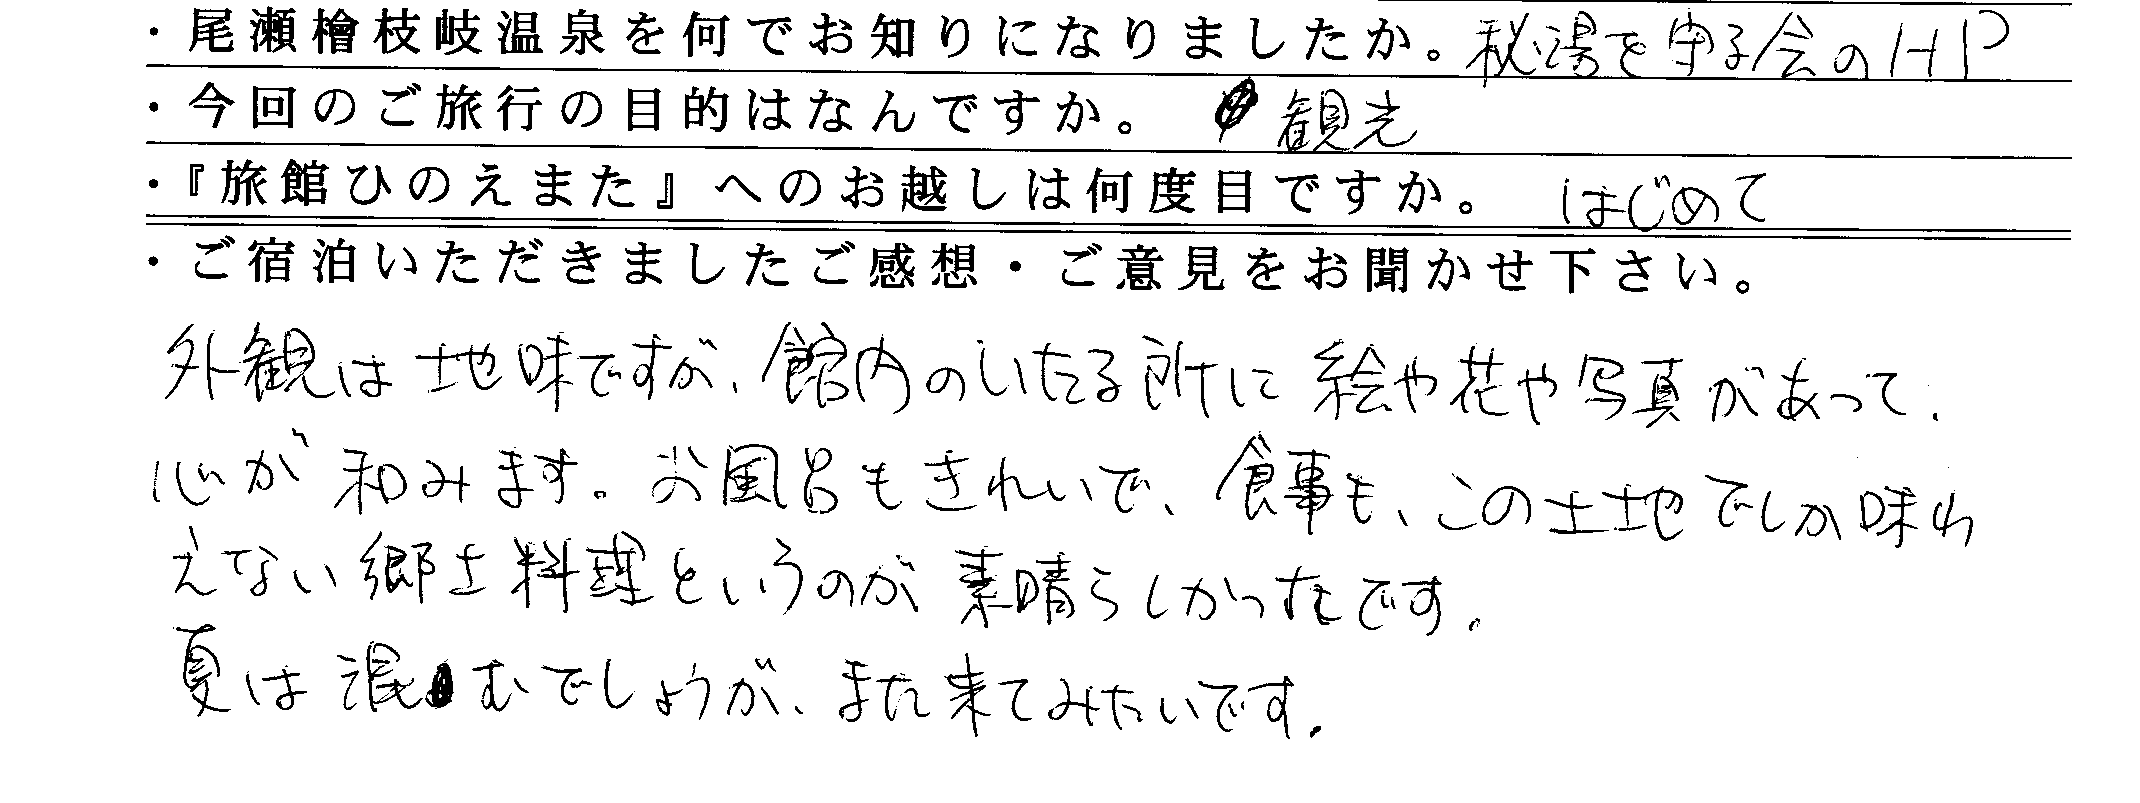 ・尾瀬檜枝岐温泉を何でお知りになりましたか。秘湯を守る会のHP
・今回のご旅行の目的はなんですか。 観光
・『旅館ひのえまた』へのお越しは何度目ですか。 はじめて
・ご宿泊いただきましたご感想・ご意見をお聞かせ下さい。
外観は地味ですが、館内のいたる所に絵や花や写真があって、
心が和みます。お風呂もきれいで、食事も、この土地でしか味わ
えない郷土料理というのが素晴らしかったです。
夏は混むでしょうが、また来てみたいです。